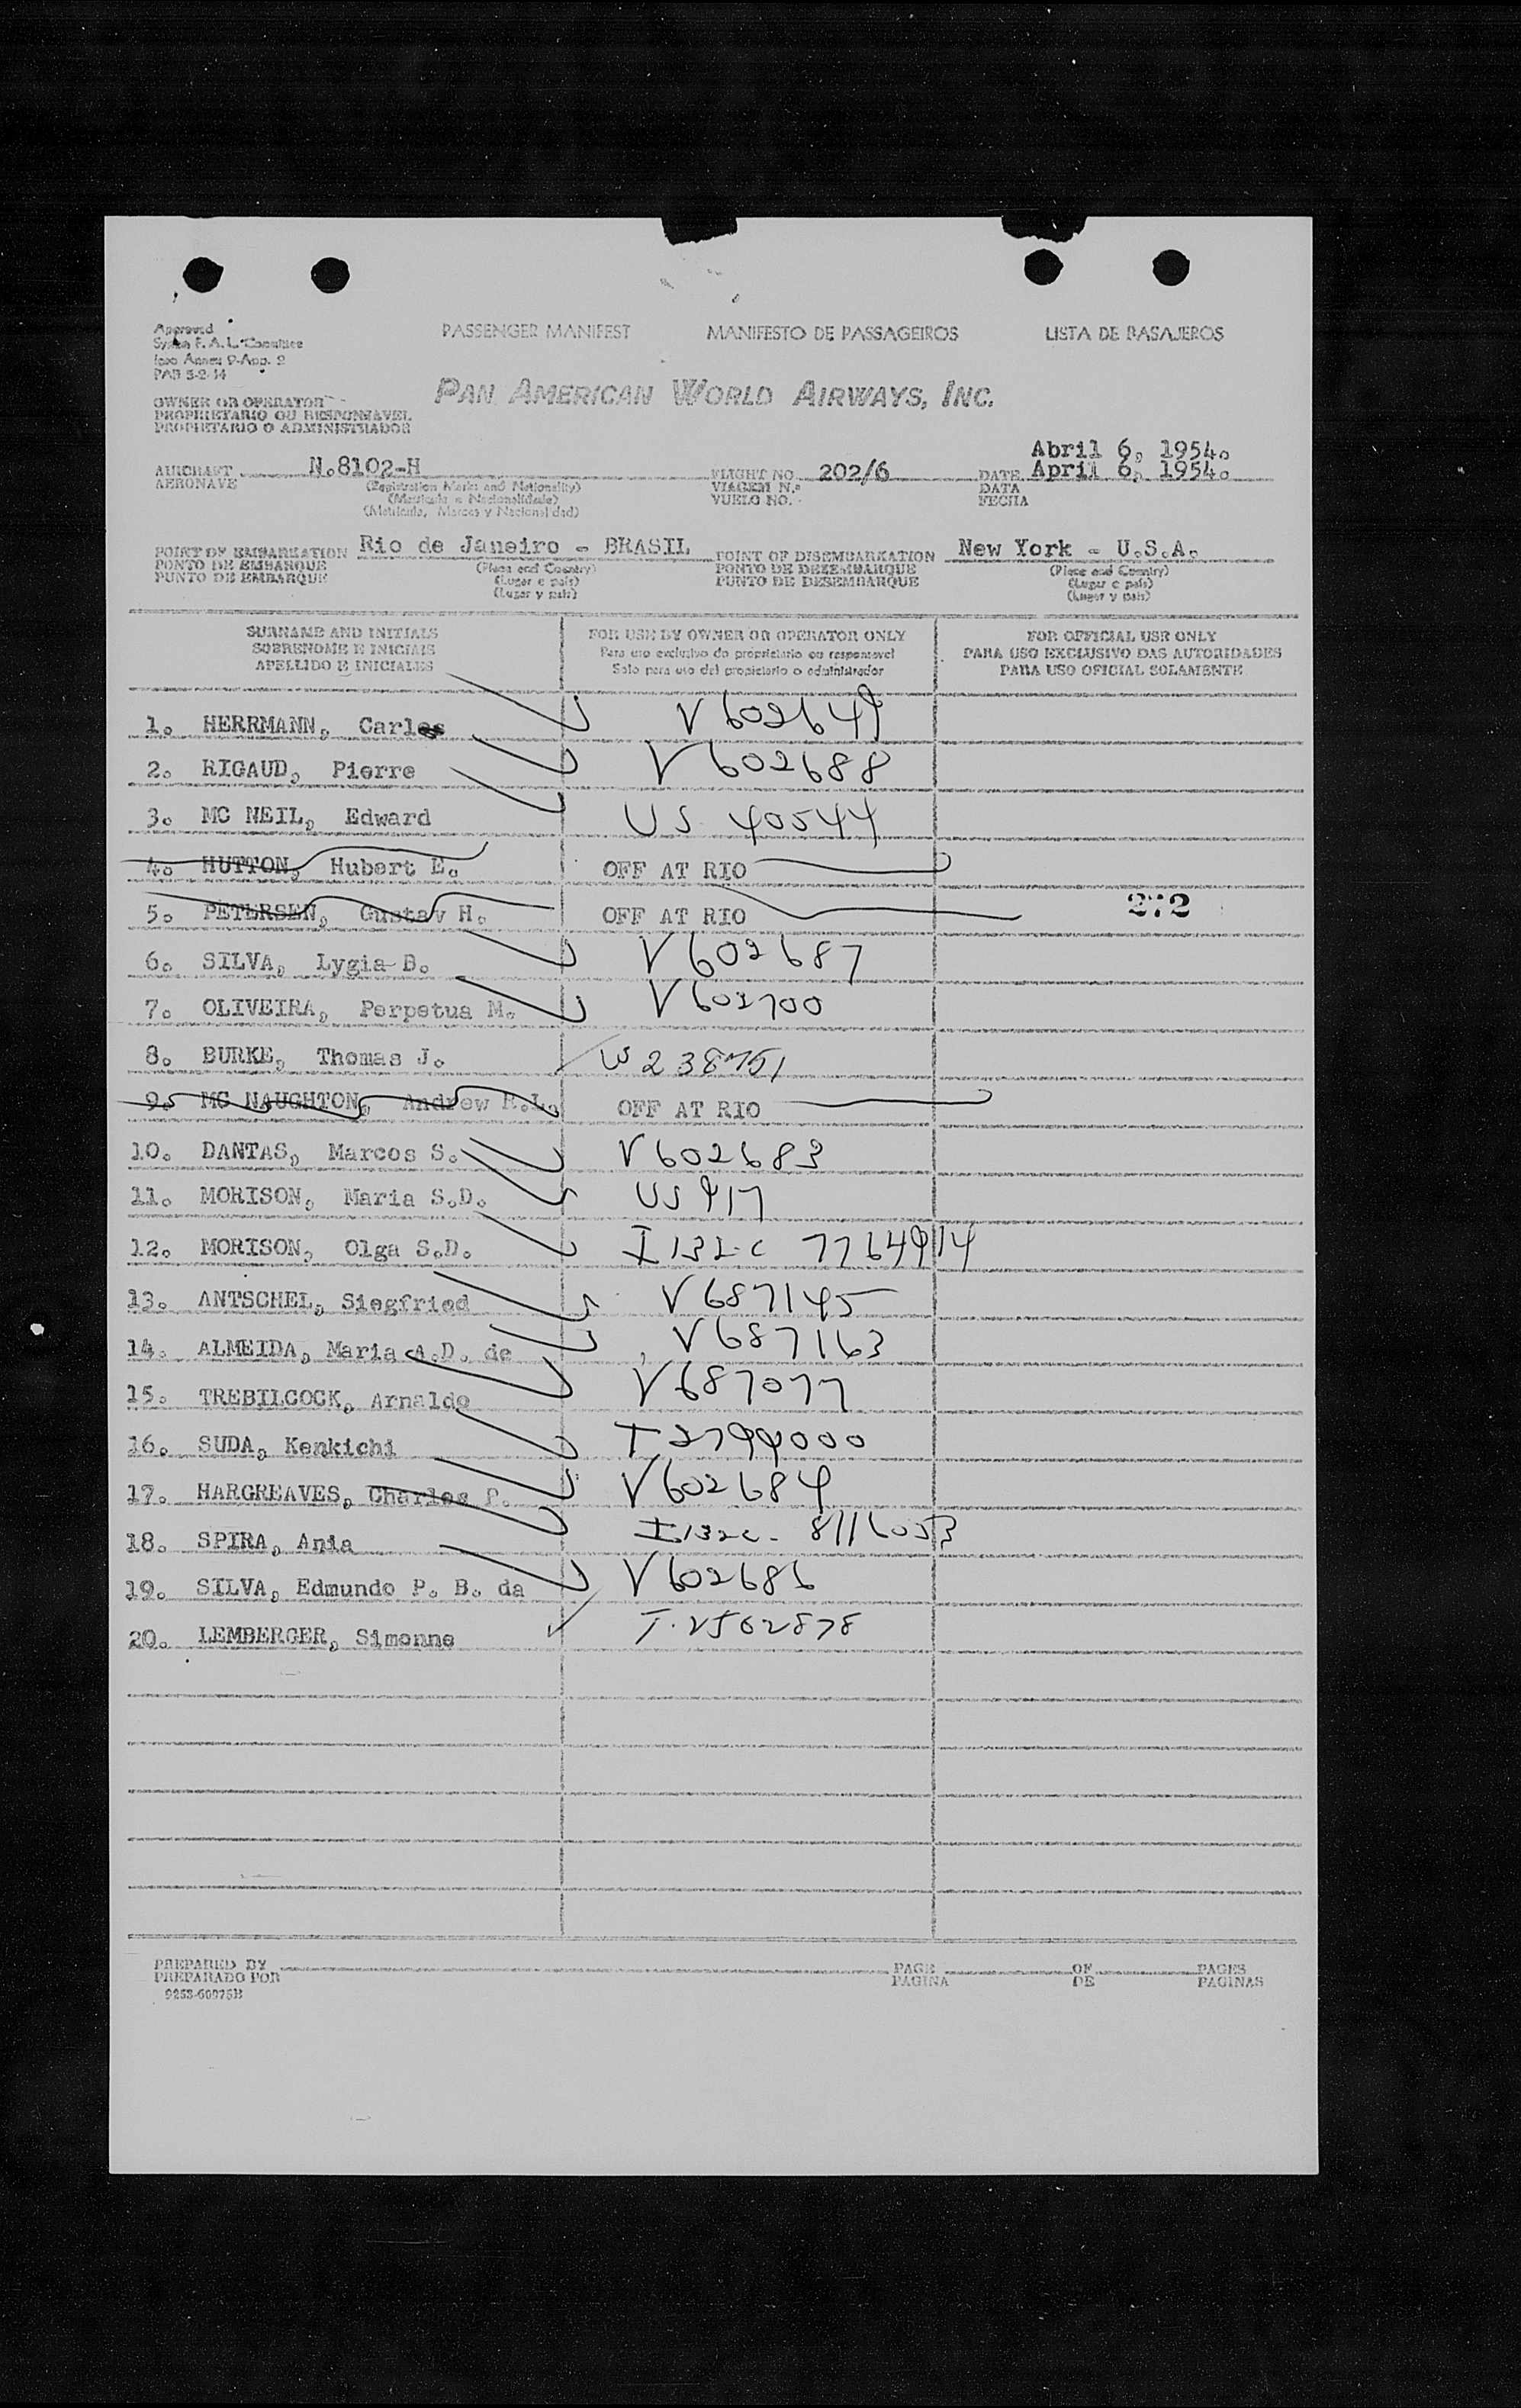 Approved
System F. A. L. Committee
Icao Annex 9-App. 2
PAB 5-2-14
PASSENGER MANIFEST MANIFESTO DE PASSAGEIROS LISTA DE PASAJEROS
PAN AMERICAN WORLD AIRWAYS, INC.
OWNER OR OPERATOR
PROPRIETARIO OU RESPONSAVEL
PROPIETARIO O ADMINISTRADOR
Abril 6, 1954.
AIRCRAFT N.8102-H FLIGHT NO. 202/6 DATE April 6, 1954.
AERONAVE (Registration Marks and Nationality) VIAGEM N.º DATA
(Matricula e Nacionalidade) VUELO NO. FECHA
(Matricula, Marcas y Nacionalidad)
POINT OF EMBARKATION Rio de Janeiro - BRASIL POINT OF DISEMBARKATION New York - U.S.A.
PONTO DE EMBARQUE (Place and Country) PONTO DE DEZEMBARQUE (Place and Country)
PUNTO DE EMBARQUE (Lugar e pais) PUNTO DE DESEMBARQUE (Lugar e pais)
(Lugar y pais) (Lugar y pais)
SURNAME AND INITIALS FOR USE BY OWNER OR OPERATOR ONLY FOR OFFICIAL USE ONLY
SOBRENOME E INICIAIS Para uso exclusivo do proprietario ou responsavel PARA USO EXCLUSIVO DAS AUTORIDADES
APELLIDO E INICIALES Solo para uso del propietario o administrador PARA USO OFICIAL SOLAMENTE
1. HERRMANN, Carlos V602649
2. RIGAUD, Pierre V602688
3. MC NEIL, Edward US 40544
4. HUTTON, Hubert E. OFF AT RIO
5. PETERSEN, Gustav H. OFF AT RIO 272
6. SILVA, Lygia B. V602687
7. OLIVEIRA, Perpetua M. V602700
8. BURKE, Thomas J. US 238751
9. MC NAUGHTON, Andrew R.L. OFF AT RIO
10. DANTAS, Marcos S. V602683
11. MORISON, Maria S.D. US 917
12. MORISON, Olga S.D. I 132-c 7764914
13. ANTSCHEL, Siegfried V687145
14. ALMEIDA, Maria A.D. de V687163
15. TREBILCOCK, Arnaldo V687077
16. SUDA, Kenkichi I 2799000
17. HARGREAVES, Charles P. V602684
18. SPIRA, Ania I132c- 8116053
19. SILVA, Edmundo P. B. da V602686
20. LEMBERGER, Simonne I. V562878
PREPARED BY PAGE OF PAGES
PREPARADO POR PAGINA DE PAGINAS
9253-60975B